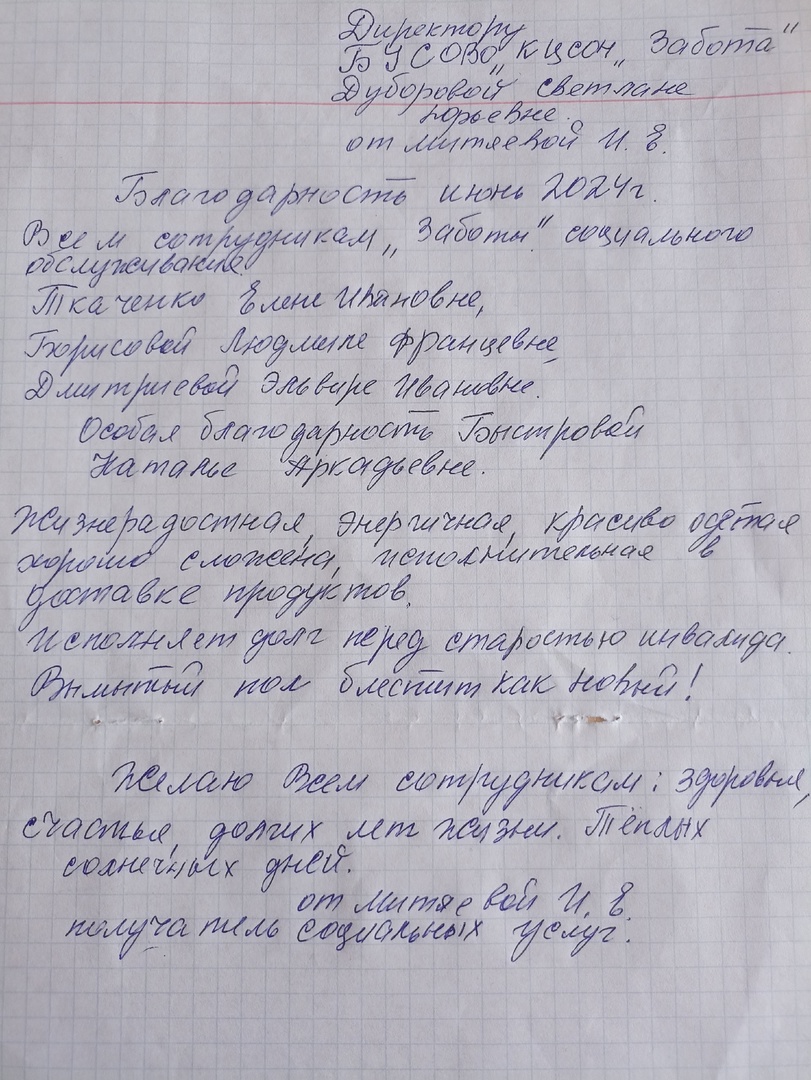 Директору
БУСОВО „КЦСОН „Забота“
Дуборовой Светлане
Юрьевне.
от Митяевой И. Е.
Благодарность июнь 2024г.
Всем сотрудникам „Заботы“ социального
обслуживание.
Ткаченко Елене Ивановне,
Борисовой Людмиле Францевне,
Дмитриевой Эльвире Ивановне.
Особая благодарность Быстровой
Наталье Аркадьевне.
Жизнерадостная, энергичная, красиво одетая
хорошо сложена, исполнительная в
доставке продуктов.
Исполняет долг перед старостью инвалида.
Вымытый пол блестит как новый!
Желаю Всем сотрудникам: здоровья,
счастья, долгих лет жизни. Тёплых
солнечных дней.
от Митяевой И. Е.
получатель социальных услуг.